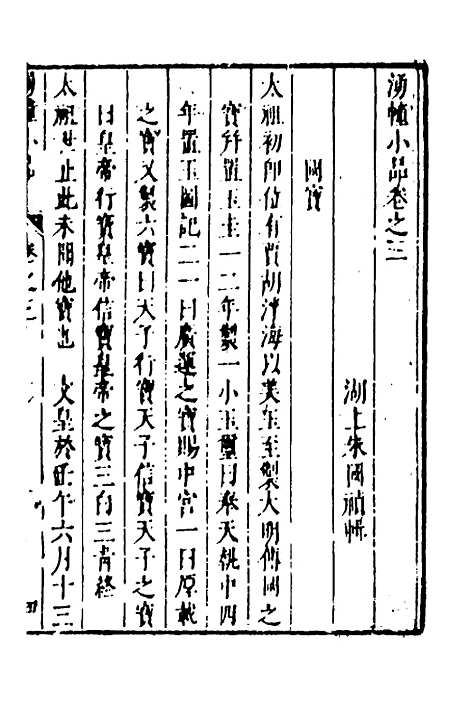 湧幢小品卷之三
湖上朱國禎輯
國寶
太祖初即位有賈胡浮海以美玉至製大明傳國之
寶并置玉圭一二年製一小玉璽曰奉天執中四
年置玉圖記二一曰廣運之寶賜中宮一曰厚載
之寶又製六寶曰天子行寶天子信寶天子之寶
曰皇帝行寶皇帝信寶皇帝之寶三白三青終
太祖世止此未聞他寶也 文皇於壬午六月十三
湧幢小品 卷之三